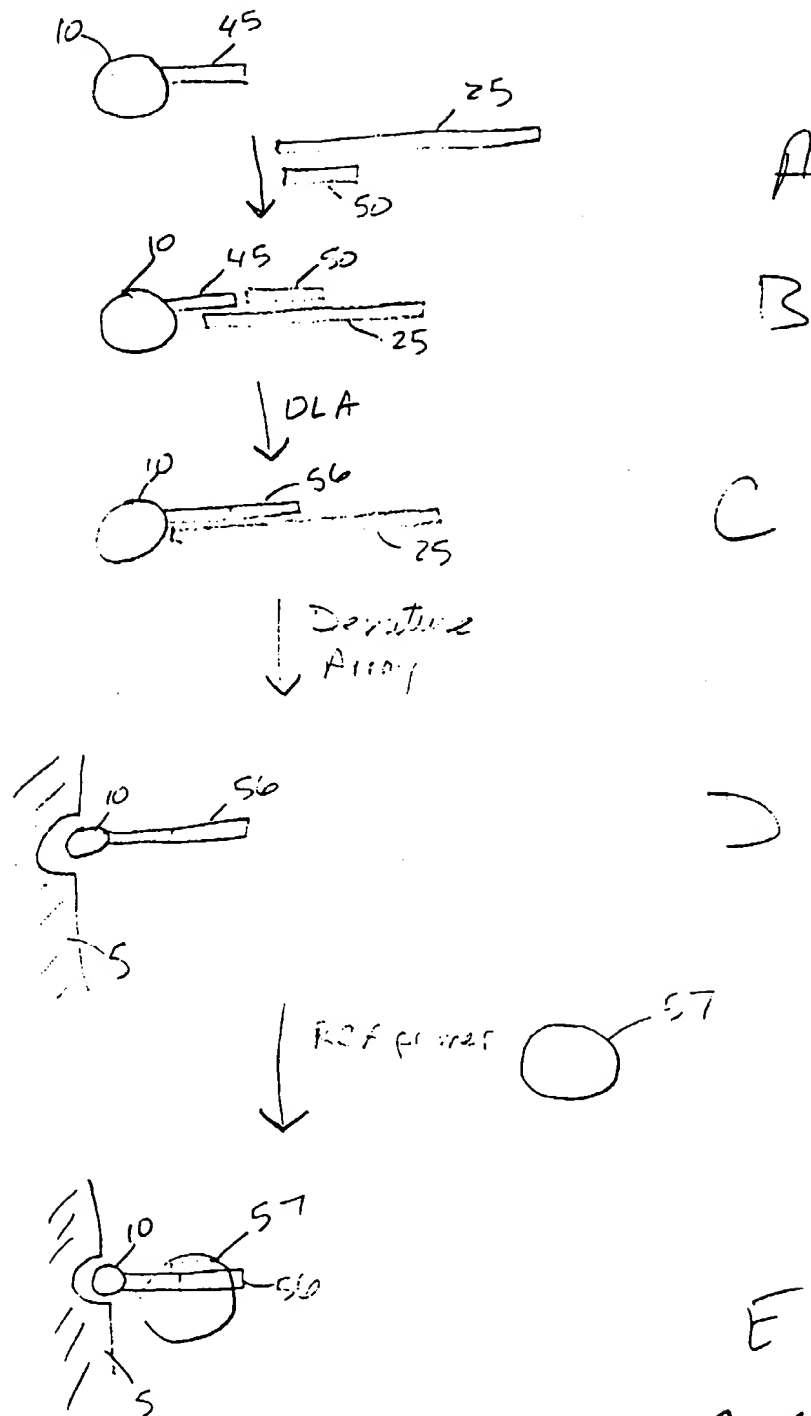 10 45
25
A
50
10 45 50
B
25
OLA
10 56
C
25
Denature
Array
10 56
D
5
57
primer
10 57
56
E
5